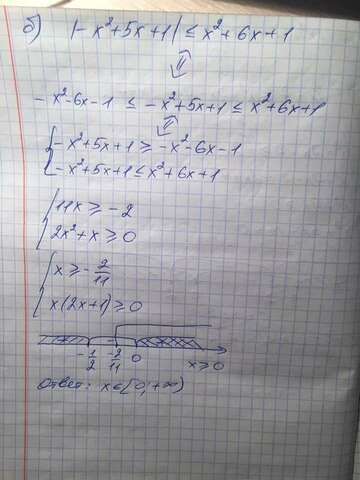 б) |-x²+5x+1| ≤ x²+6x+1
⇕
-x²-6x-1 ≤ -x²+5x+1 ≤ x²+6x+1
⇕
{ -x²+5x+1 ≥ -x²-6x-1
{ -x²+5x+1 ≤ x²+6x+1
{ 11x ≥ -2
{ 2x²+x ≥ 0
{ x ≥ -2/11
{ x(2x+1) ≥ 0
-1/2 -2/11 0 x ≥ 0
Ответ: x∈[0;+∞)